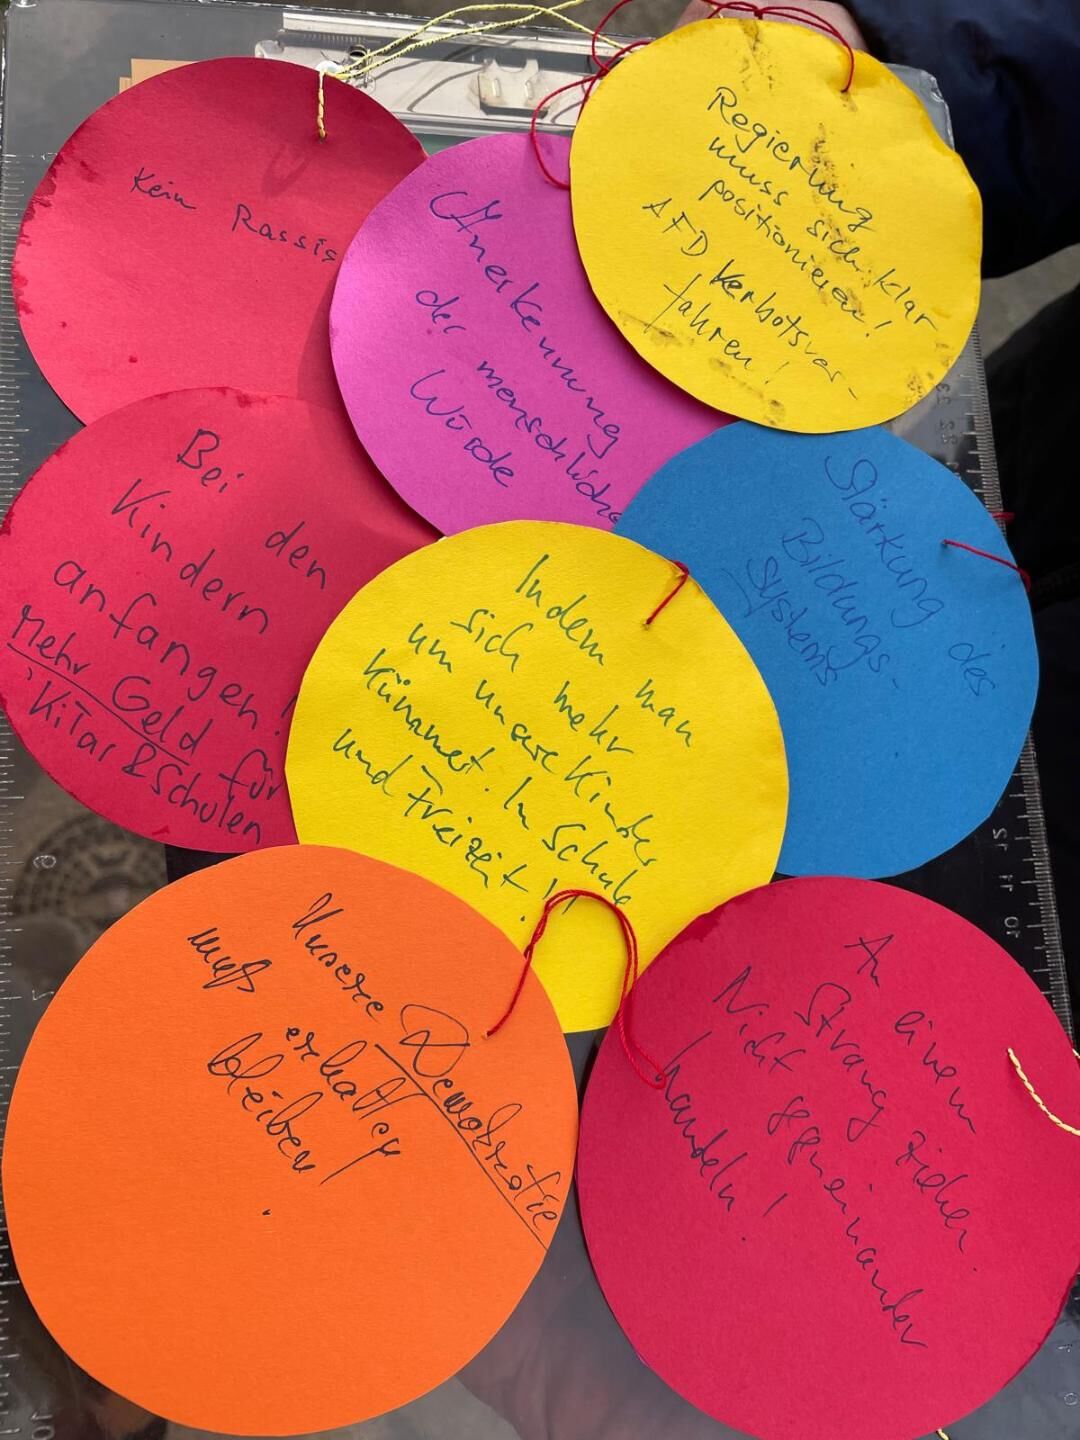 Kein Rassis
Anerkennung
der menschliche
Würde
Regierung
muss sich klar
positionieren!
AFD Verbotsver-
fahren!
Bei den
Kindern
anfangen!
Mehr Geld für
KiTas & Schulen
Stärkung des
Bildungs-
systems
Indem man
sich mehr
um unsere Kinder
kümmert. In Schule
und Freizeit!!
Unsere Demokratie
muß erhalten
bleiben!
An einem
Strang ziehen.
Nicht gegeneinander
handeln!